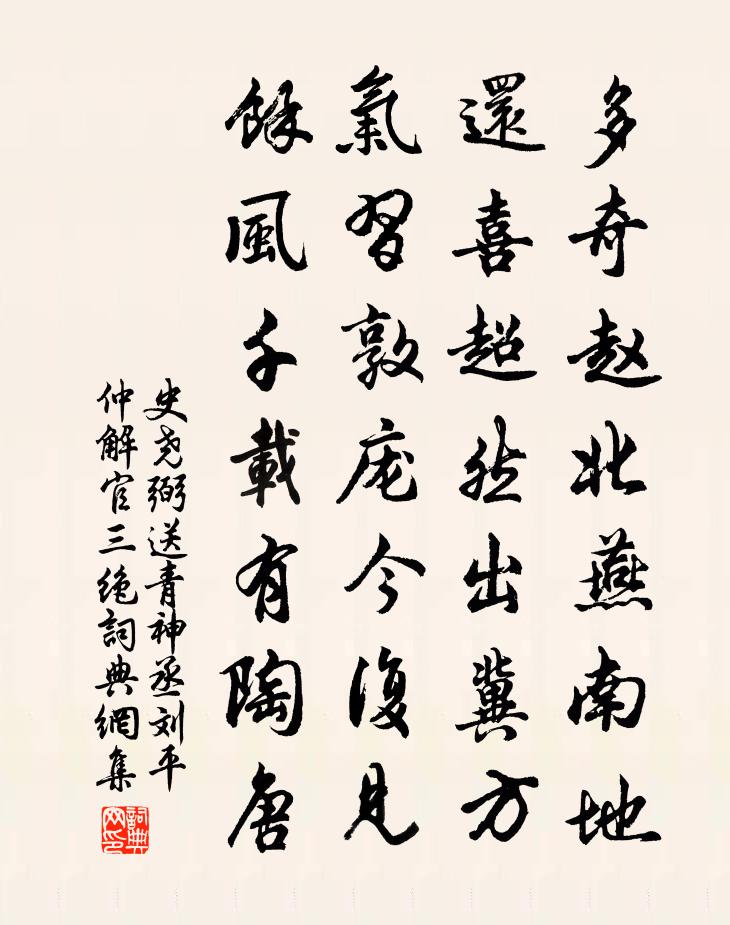 多奇赵北燕南地
還喜超然出冀方
氣習敦庞今復見
餘風千載有陶唐
史尧弼送青神丞刘平
仲解官三绝詞典網集
詞典
网印